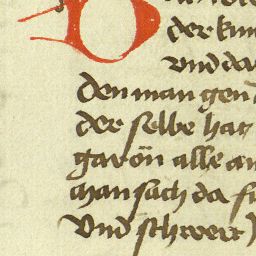 D
der kun
vnd da
den man gen
der selbe hat
gar ön alle an
man sach da
Vnd schwert